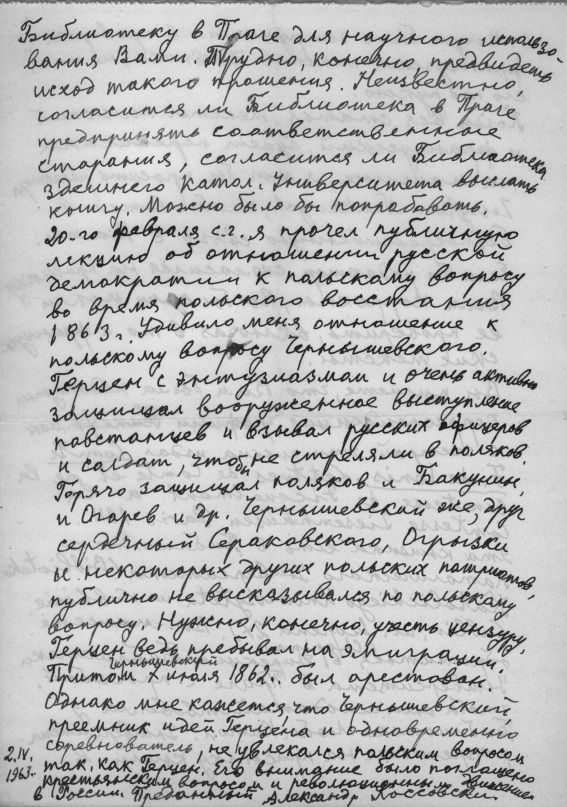 Библиотеку в Праге для научного использо-
вания Вами. Трудно, конечно, предвидеть
исход такого прошения. Неизвестно,
согласится ли Библиотека в Праге
предпринять соответственные
старания, согласится ли Библиотека
здешнего Катол. Университета выслать
книгу. Можно было бы попробовать.
20-го февраля с.г. я прочел публичную
лекцию об отношении русской
демократии к польскому вопросу
во время польского восстания
1863 г. Удивило меня отношение к
польскому вопросу Чернышевского.
Герцен с энтузиазмом и очень активно
защищал вооруженное выступление
повстанцев и взывал русских офицеров
и солдат, чтобы не стреляли в поляков.
Горячо защищал поляков и Бакунин,
и Огарев и др. Чернышевский же, друг
сердечный Сераковского, Огрызки
и некоторых других польских патриотов,
публично не высказывался по польскому
вопросу. Нужно, конечно, учесть цензуру,
Герцен ведь пребывал на эмиграции.
Притом Чернышевский июля 1862 г. был арестован.
Однако мне кажется, что Чернышевский,
преемник идей Герцена и одновременно
соревнователь, не увлекался польским вопросом
так, как Герцен. Его внимание было поглощено
крестьянским вопросом и революционным движением
в России. Преданный Александр Коссовский
2.IV.
1963 г.